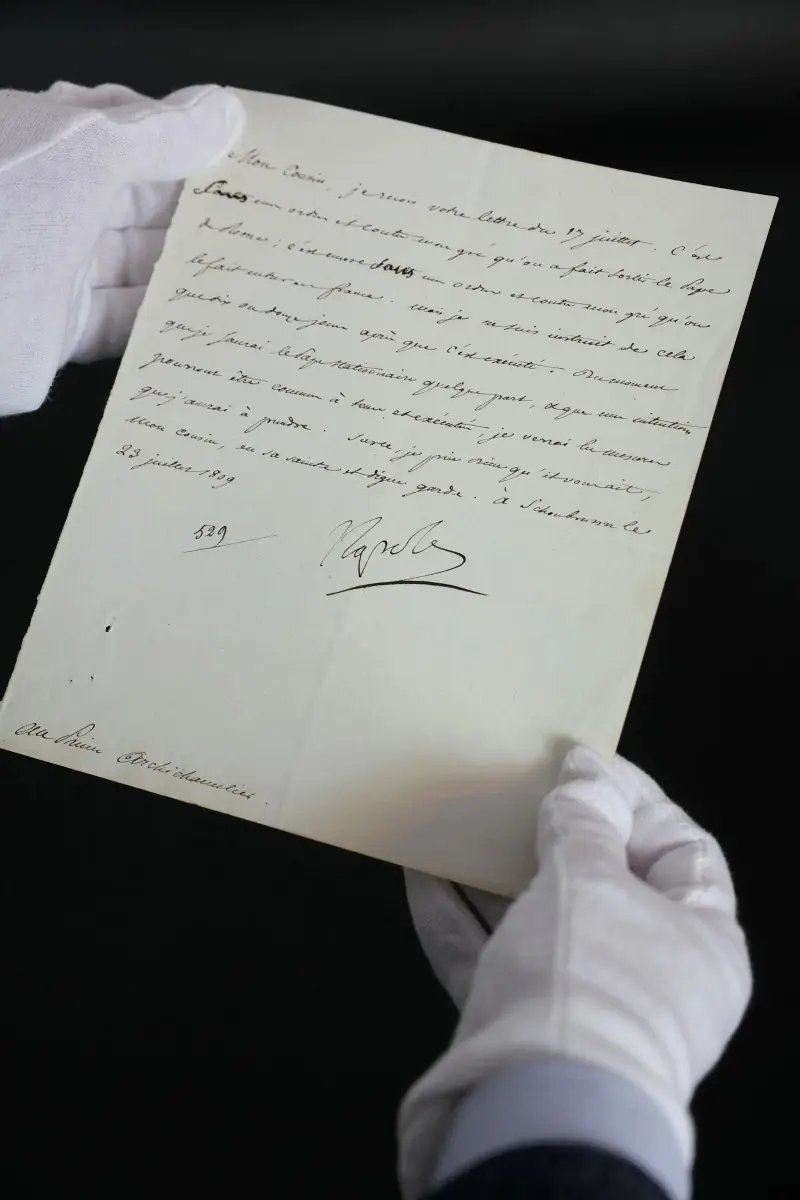 Mon Cousin, je reçois votre lettre du 17 juillet. C'est
sans mon ordre et contre mon gré qu'on a fait sortir le Pape
de Rome; c'est encore sans mon ordre et contre mon gré qu'on
le fait entrer en france. mais je ne suis instruit de cela
que dix ou douze jours après que c'est exécuté. Du moment
que je saurai le Pape stationnaire quelque part, & que mes intentions
pourront être connues à tems et exécutées, je verrai les mesures
que j'aurai à prendre. Sur ce, je prie Dieu qu'il vous ait,
Mon cousin, en sa sainte et digne garde. à Schönbrunn le
23 juillet 1809
529
Napole
au Prince Archichancelier.